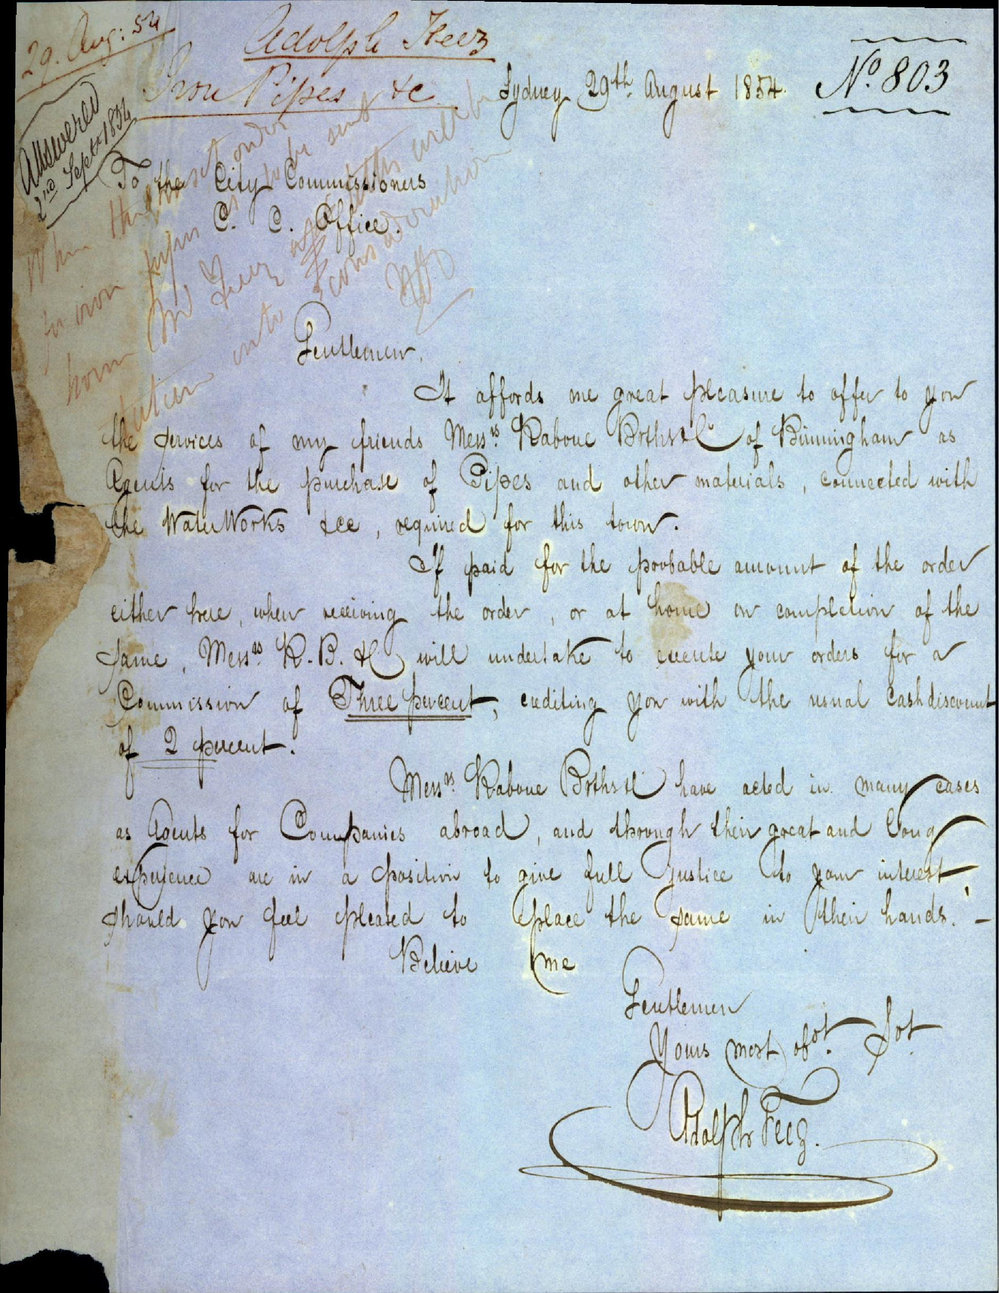 29. Aug: 54
Adolph Feez
Iron Pipes &c
Answered
2nd Sept 1854
Sydney 29th August 1854.
No 803
To the City Commissioners
C. C. Office.
When the next order
for iron pipes is to be sent
home Mr Feez's letter will be
taken into consideration
Gentlemen,
It affords me great pleasure to offer to you
the services of my friends Messrs Rabone Brths & Co of Birmingham as
Agents for the purchase of Pipes and other materials, connected with
the WaterWorks &ce, required for this town.
If paid for the probable amount of the order
either here, when receiving the order, or at home on completion of the
same, Messrs R. B. & C will undertake to execute your orders for a
Commission of Three percent, crediting you with the usual cash discount
of 2 percent.
Messrs Rabone Brths & C have acted in many cases
as Agents for Companies abroad, and through their great and long
experience are in a position to give full justice to your interest,
should you feel pleased to place the same in their hands. –
Believe me
Gentlemen
Yours most obt. Sot.
Adolph Feez.